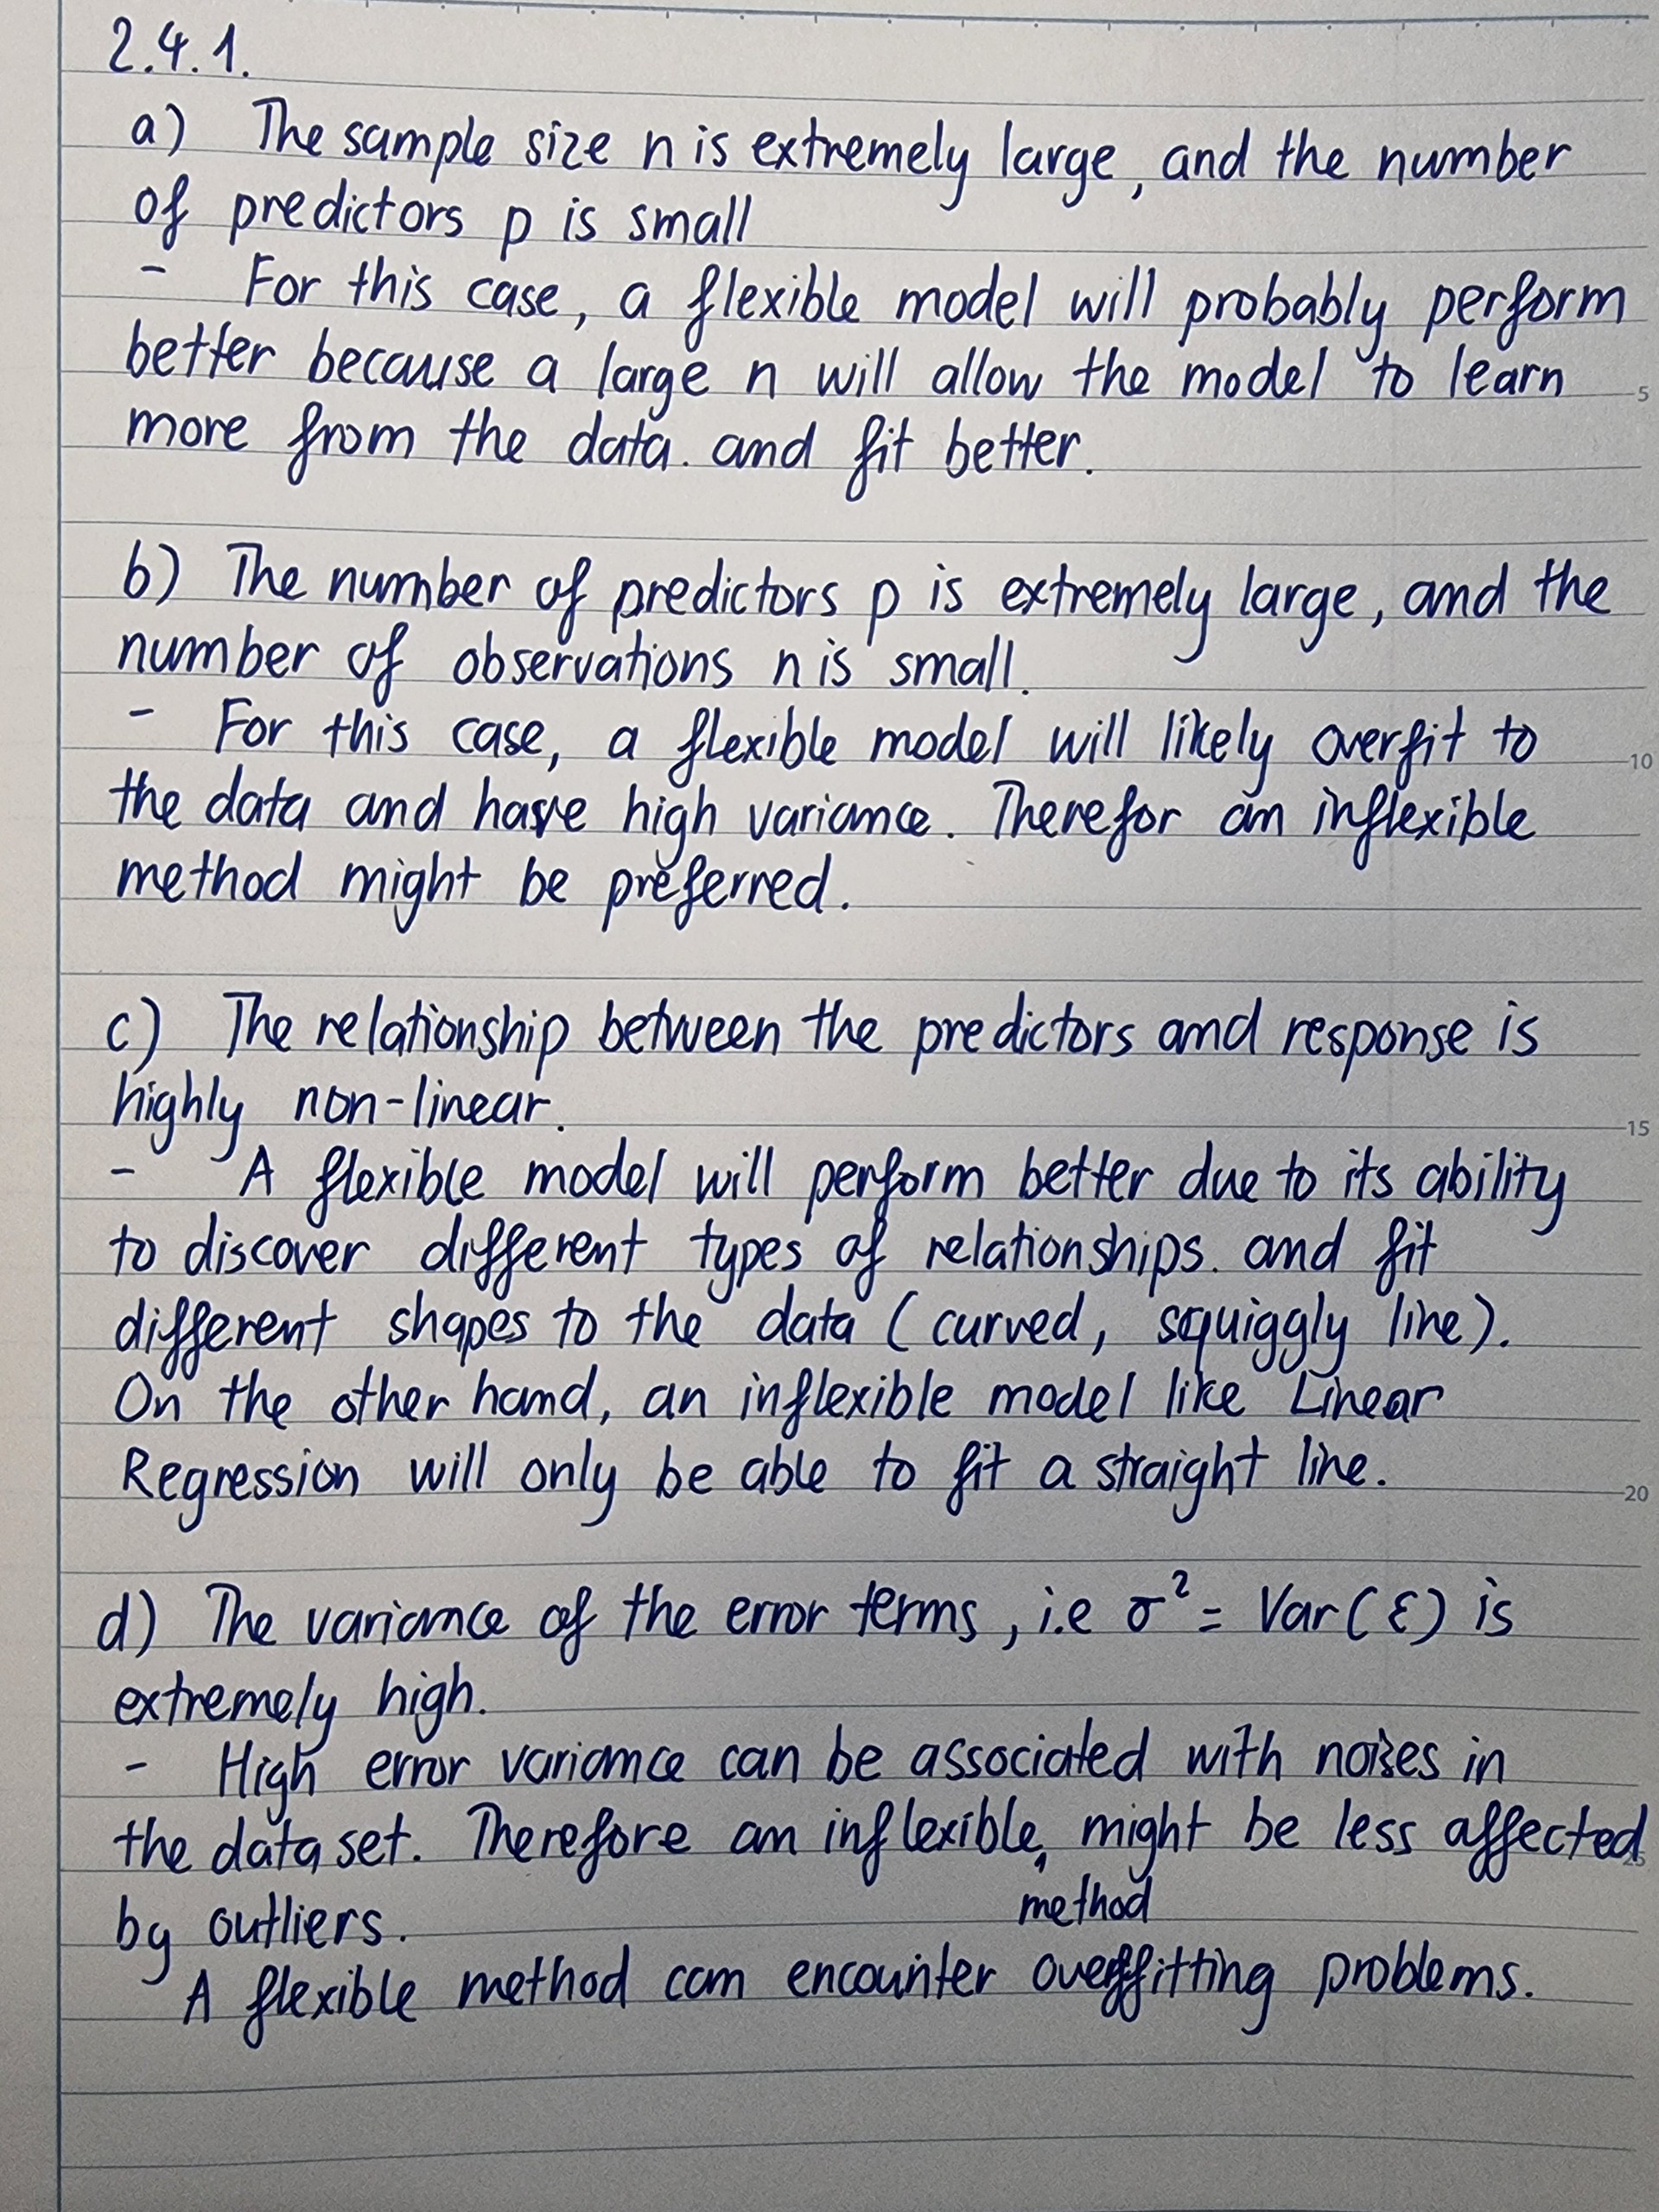 2.4.1.
a) The sample size n is extremely large, and the number
of predictors p is small
- For this case, a flexible model will probably perform
better because a large n will allow the model to learn
5
more from the data. and fit better.
b) The number of predictors p is extremely large, and the
number of observations n is small.
- For this case, a flexible model will likely overfit to
10
the data and have high variance. Therefor an inflexible
method might be preferred.
c) The relationship between the predictors and response is
highly non-linear.
15
- A flexible model will perform better due to its ability
to discover different types of relationships. and fit
different shapes to the data (curved, squiggly line).
On the other hand, an inflexible model like Linear
Regression will only be able to fit a straight line.
20
d) The variance of the error terms, i.e σ² = Var(ε) is
extremely high.
- High error variance can be associated with noises in
the data set. Therefore an inflexible method might be less affected
25
by outliers.
A flexible method can encounter overfitting problems.